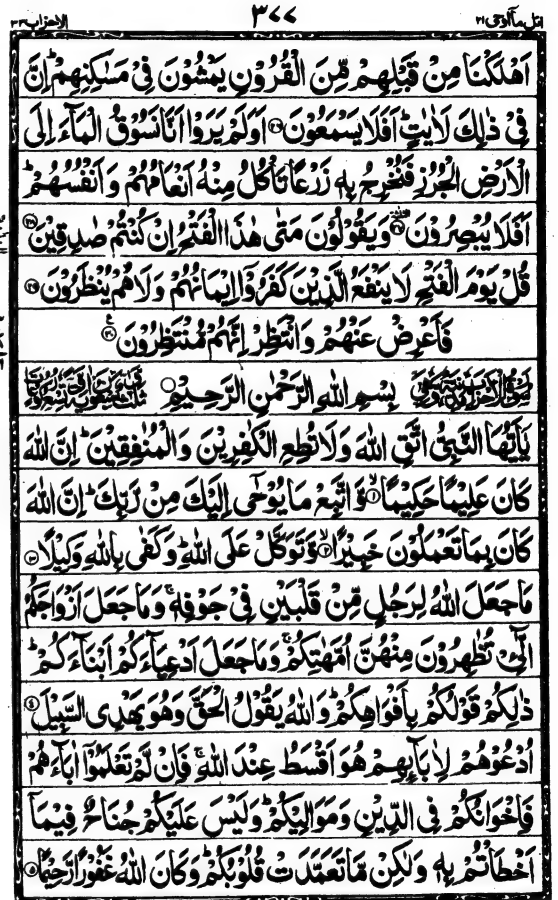 اتل ماۤ اوحی ۲۱ ۳۷۷ الاحزاب ۳۳
اَهْلَكْنَا مِنْ قَبْلِهِمْ مِّنَ الْقُرُوْنِ يَمْشُوْنَ فِيْ مَسٰكِنِهِمْ ؕ اِنَّ
فِيْ ذٰلِكَ لَاٰيٰتٍ ؕ اَفَلَا يَسْمَعُوْنَ ﴿۲۶﴾ اَوَلَمْ يَرَوْا اَنَّا نَسُوْقُ الْمَآءَ اِلَى
الْاَرْضِ الْجُرُزِ فَنُخْرِجُ بِهٖ زَرْعًا تَاْكُلُ مِنْهُ اَنْعَامُهُمْ وَ اَنْفُسُهُمْ ؕ
اَفَلَا يُبْصِرُوْنَ ﴿۲۷﴾ وَ يَقُوْلُوْنَ مَتٰى هٰذَا الْفَتْحُ اِنْ كُنْتُمْ صٰدِقِيْنَ ﴿۲۸﴾
قُلْ يَوْمَ الْفَتْحِ لَا يَنْفَعُ الَّذِيْنَ كَفَرُوْۤا اِيْمَانُهُمْ وَلَا هُمْ يُنْظَرُوْنَ ﴿۲۹﴾
فَاَعْرِضْ عَنْهُمْ وَ انْتَظِرْ اِنَّهُمْ مُّنْتَظِرُوْنَ ﴿۳۰﴾
بِسْمِ اللّٰهِ الرَّحْمٰنِ الرَّحِيْمِ
يٰۤاَيُّهَا النَّبِيُّ اتَّقِ اللّٰهَ وَلَا تُطِعِ الْكٰفِرِيْنَ وَ الْمُنٰفِقِيْنَ ؕ اِنَّ اللّٰهَ
كَانَ عَلِيْمًا حَكِيْمًا ﴿۱﴾ وَّ اتَّبِعْ مَا يُوْحٰۤى اِلَيْكَ مِنْ رَّبِّكَ ؕ اِنَّ اللّٰهَ
كَانَ بِمَا تَعْمَلُوْنَ خَبِيْرًا ﴿۲﴾ وَّ تَوَكَّلْ عَلَى اللّٰهِ ؕ وَ كَفٰى بِاللّٰهِ وَكِيْلًا ﴿۳﴾
مَا جَعَلَ اللّٰهُ لِرَجُلٍ مِّنْ قَلْبَيْنِ فِيْ جَوْفِهٖ ۚ وَ مَا جَعَلَ اَزْوَاجَكُمُ
الّٰٓـِٔيْ تُظٰهِرُوْنَ مِنْهُنَّ اُمَّهٰتِكُمْ ۚ وَ مَا جَعَلَ اَدْعِيَآءَكُمْ اَبْنَآءَكُمْ ؕ
ذٰلِكُمْ قَوْلُكُمْ بِاَفْوَاهِكُمْ ؕ وَ اللّٰهُ يَقُوْلُ الْحَقَّ وَهُوَ يَهْدِى السَّبِيْلَ ﴿۴﴾
اُدْعُوْهُمْ لِاٰبَآئِهِمْ هُوَ اَقْسَطُ عِنْدَ اللّٰهِ ۚ فَاِنْ لَّمْ تَعْلَمُوْۤا اٰبَآءَهُمْ
فَاِخْوَانُكُمْ فِى الدِّيْنِ وَ مَوَالِيْكُمْ ؕ وَلَيْسَ عَلَيْكُمْ جُنَاحٌ فِيْمَاۤ
اَخْطَاْتُمْ بِهٖ وَلٰكِنْ مَّا تَعَمَّدَتْ قُلُوْبُكُمْ ؕ وَ كَانَ اللّٰهُ غَفُوْرًا رَّحِيْمًا ﴿۵﴾